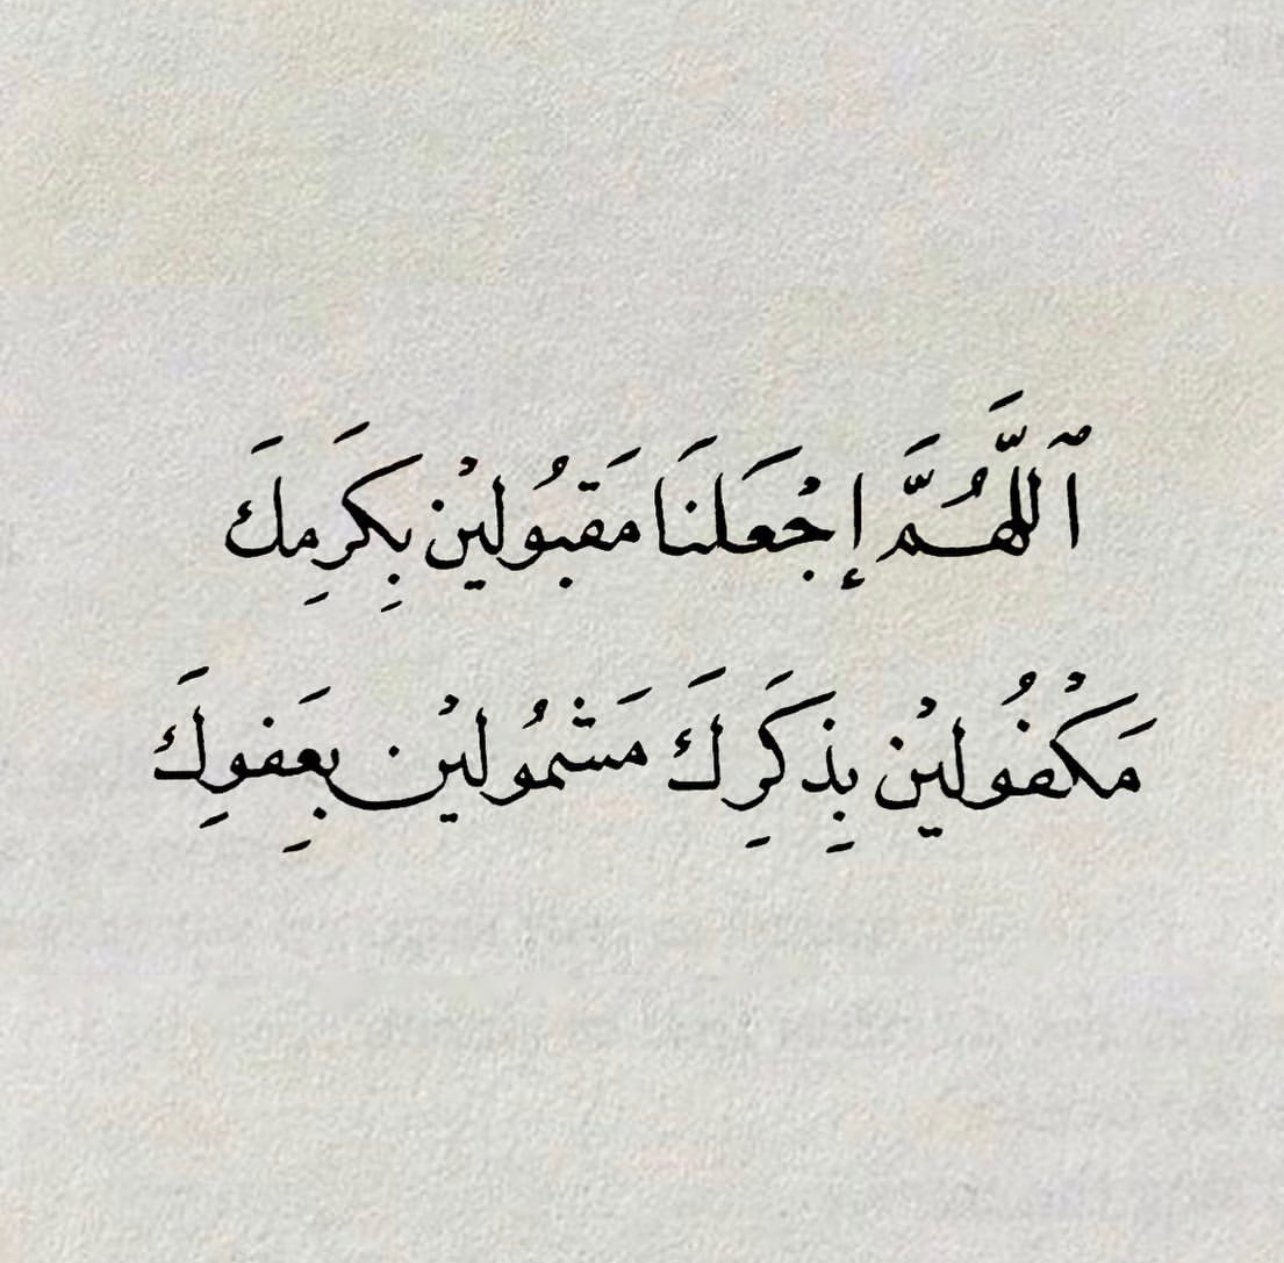 ٱللَّهُمَّ إِجْعَلنَا مَقبُولیْن بِكَرَمِكَ
مَكْفُولیْن بِذكَرِكَ مَشمُولیْن بِعَفوِكَ